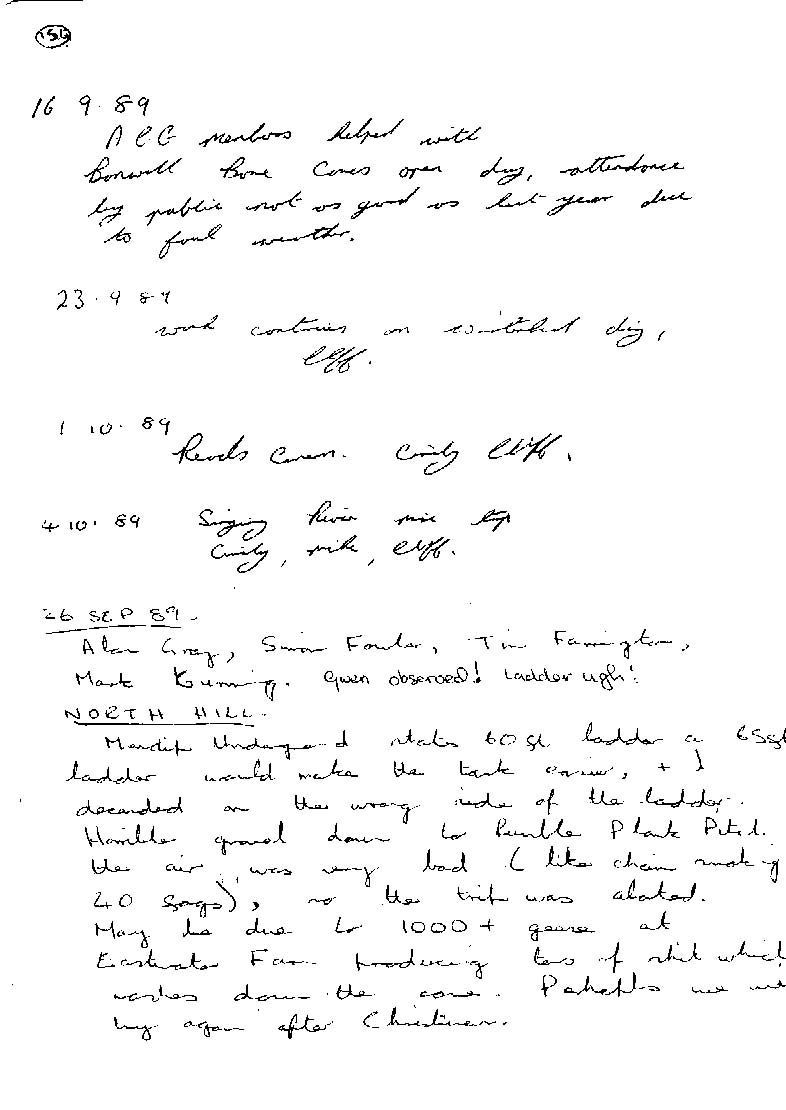 156
16 9.89
A C G members helped with
Banwell Bone Caves open day, attendance
by public not as good as last year due
to foul weather.
23.9 89
work continues on dig,
Cliff.
1 10. 89
Reads Cavern. Cindy Cliff.
4 10. 89 Singing River mine trip
Cindy, mike, Cliff.
26 SEP 89.
Alan Gray, Simon Fowler, Tim Farrington,
Mark . Gwen observed! Ladder ugh!
NORTH HILL.
Mendip Underground states 60ft ladder a 65ft
ladder would make the task easier, + I
decended on the wrong side of the ladder.
Horrible gravel down to Rumble Plank Pitch.
the air was very bad (like chain smoking
40 fags), so the trip was aborted.
May be due to 1000+ geese at
Eastwater Farm producing tons of shit which
washes down the cave. Perhaps we
try again after Christmas.